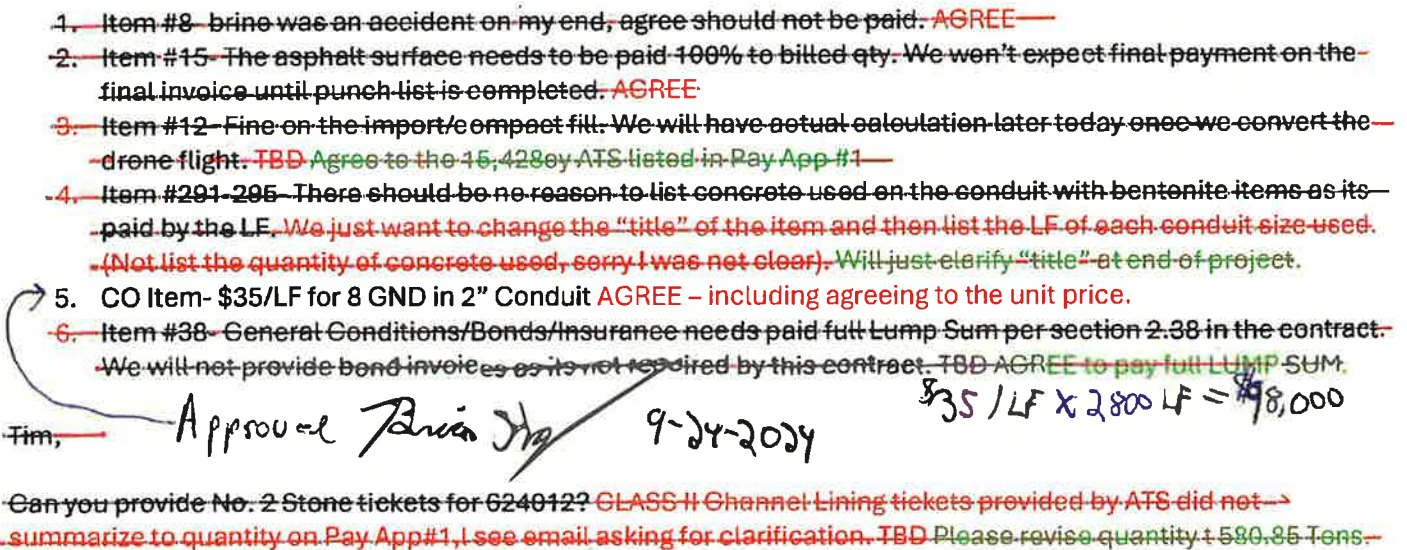 1. Item #8- brine was an accident on my end, agree should not be paid. AGREE
2. Item #15- The asphalt surface needs to be paid 100% to billed qty. We won't expect final payment on the
final invoice until punch list is completed. AGREE
3. Item #12- Fine on the import/compact fill. We will have actual calculation later today once we convert the
drone flight. TBD Agree to the 15,428cy ATS listed in Pay App #1
4. Item #291-295- There should be no reason to list concrete used on the conduit with bentonite items as its
paid by the LF. We just want to change the "title" of the item and then list the LF of each conduit size used.
(Not list the quantity of concrete used, sorry I was not clear). Will just clarify "title" at end of project.
5. CO Item- $35/LF for 8 GND in 2" Conduit AGREE – including agreeing to the unit price.
6. Item #38- General Conditions/Bonds/Insurance needs paid full Lump Sum per section 2.38 in the contract.
We will not provide bond invoices as its not required by this contract. TBD AGREE to pay full LUMP SUM.
$35 / LF X 2800 LF = $98,000
Tim, Approved Brian 9-24-2024
Can you provide No. 2 Stone tickets for 624012? CLASS II Channel Lining tickets provided by ATS did not
summarize to quantity on Pay App#1, I see email asking for clarification. TBD Please revise quantity t 580.85 Tons.